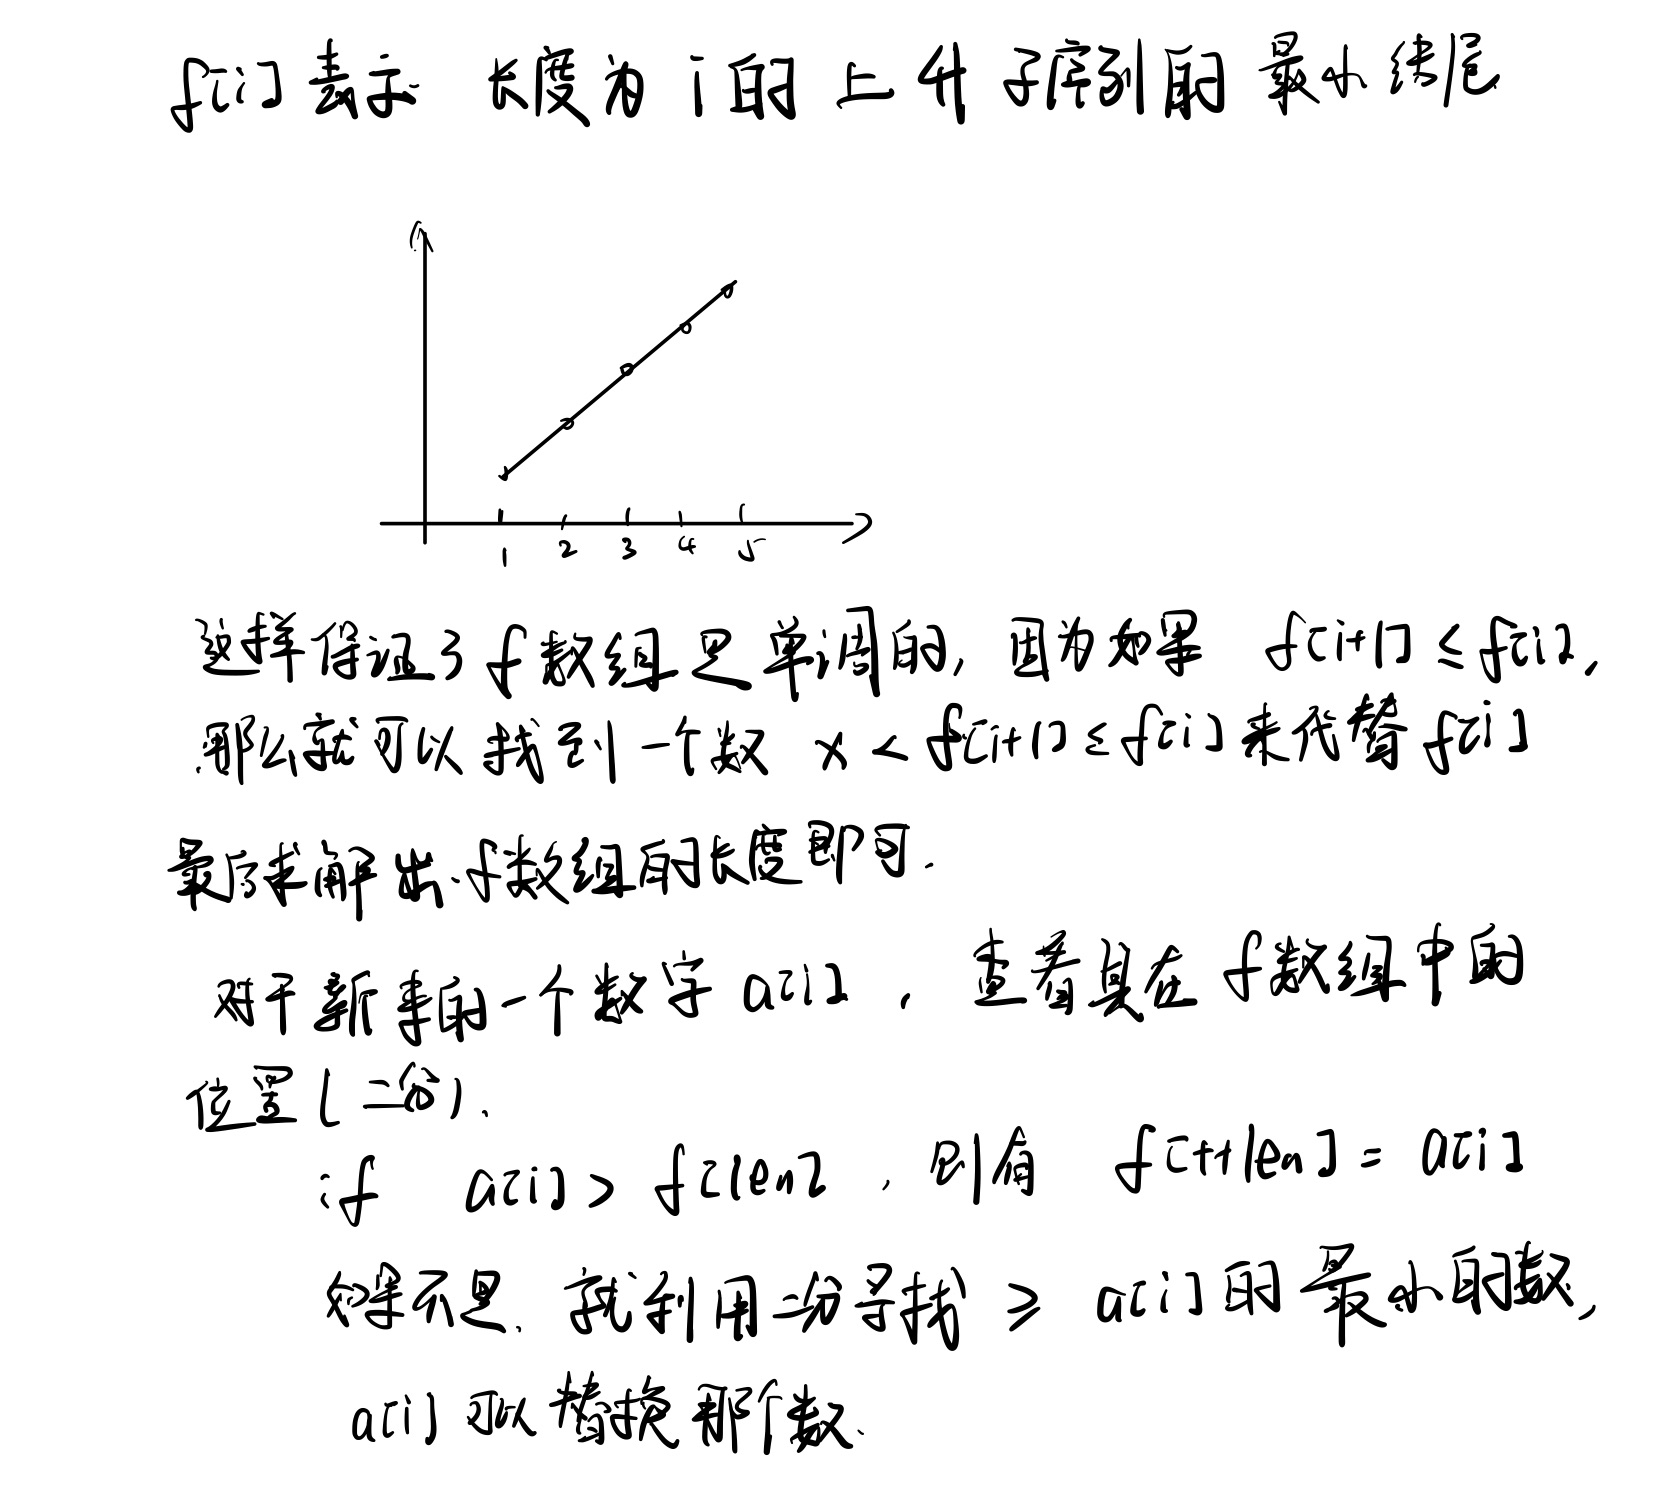 f[i]表示 长度为 i 的 上 升 子序列的 最小结尾
1 2 3 4 5
这样保证了 f 数组是单调的, 因为如果 f[i+1] ≤ f[i],
那么就可以找到一个数 x < f[i+1] ≤ f[i] 来代替 f[i]
最后求解出 f数组的长度即可.
对于新来的一个数字 a[i] , 查看其在 f数组中的
位置(二分).
if a[i] > f[len] , 则有 f[++len] = a[i]
如果不是, 就利用二分寻找 ≥ a[i] 的 最小的数,
a[i] 可以替换那个数.